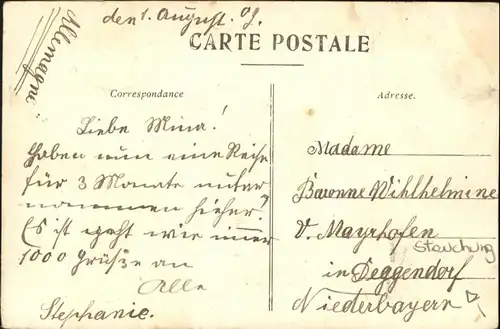 Allemagne
den 1. August. 08.
CARTE POSTALE
Correspondance
Liebe Mina!
haben nun eine Reise
für 3 Monate unter
nommen hieher?
Es ist geht wie immer
1000 Grüße an
Alle
Stephanie.
Adresse.
Madame
Baronne Wihlhelmine
v. Mayrhofen
in Deggendorf
Niederbayern